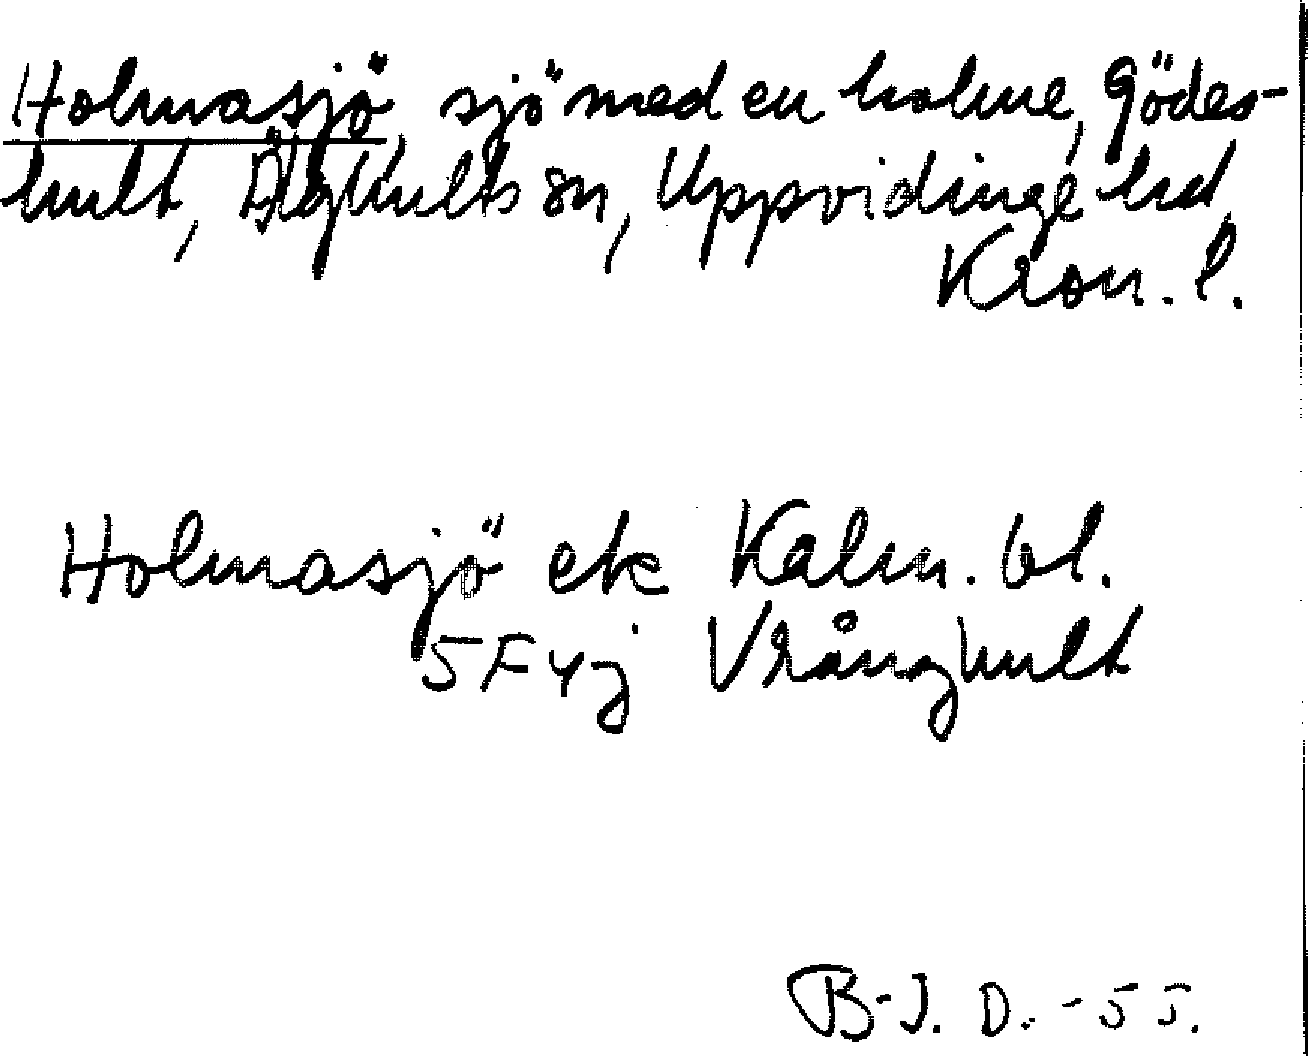 Holmasjö, sjö med en holme, Gödes-
hult, Älghults sn, Uppvidinge hd,
Kron. l.
Holmasjö ek Kalm. bl.
5F4j Vrånghult
B-J. D. -55.